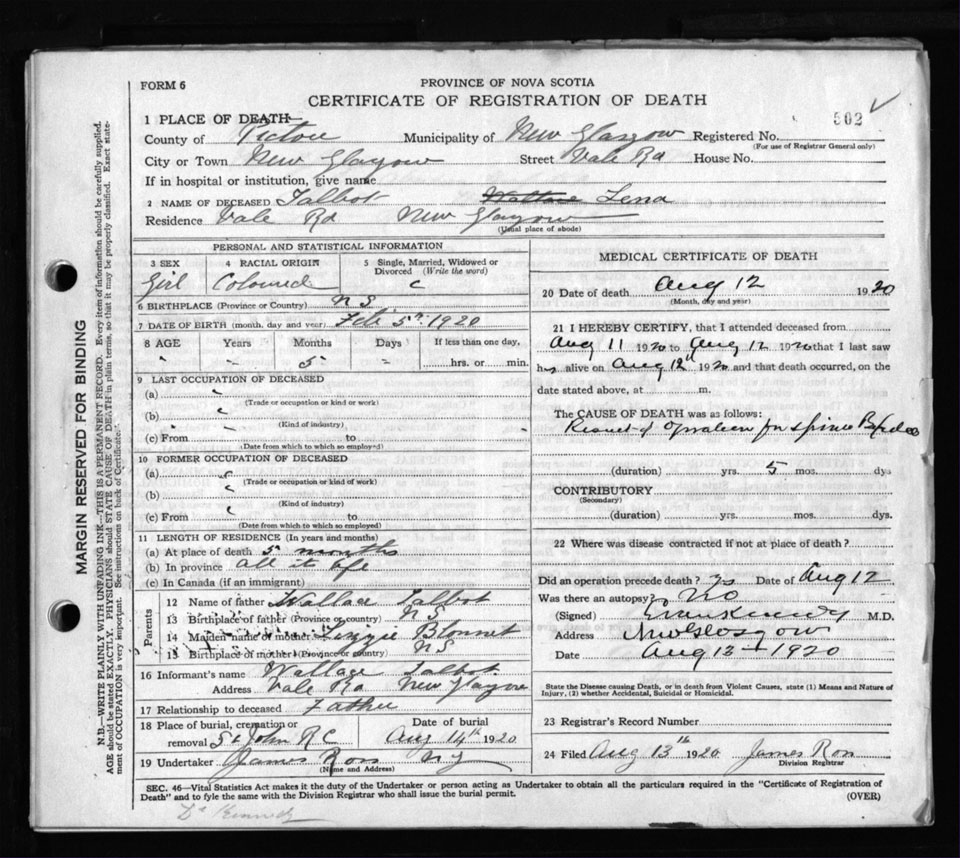 FORM 6
PROVINCE OF NOVA SCOTIA
CERTIFICATE OF REGISTRATION OF DEATH
1 PLACE OF DEATH—
502 ✓
County of Pictou Municipality of New Glasgow Registered No.
(For use of Registrar General only)
City or Town New Glasgow Street Vale Rd House No.
If in hospital or institution, give name
2 NAME OF DECEASED Talbot Wallace Lena
Residence Vale Rd New Glasgow
(Usual place of abode)
PERSONAL AND STATISTICAL INFORMATION
3 SEX
Girl
4 RACIAL ORIGIN
Coloured
5 Single, Married, Widowed or Divorced (Write the word)
c
6 BIRTHPLACE (Province or Country) N S
7 DATE OF BIRTH (month, day and year) Feb 5th 1920
8 AGE Years Months Days If less than one day,
" - 5 - hrs. or min.
9 LAST OCCUPATION OF DECEASED
(a)
(Trade or occupation or kind or work)
(b)
(Kind of industry)
(c) From to
(Date from which to which so employed)
10 FORMER OCCUPATION OF DECEASED
(a)
(Trade or occupation or kind of work)
(b)
(Kind of industry)
(c) From to
(Date from which to which so employed)
11 LENGTH OF RESIDENCE (In years and months)
(a) At place of death 5 months
(b) In province all its life
(c) In Canada (if an immigrant)
Parents
12 Name of father Wallace Talbot
13 Birthplace of father (Province or country) N S
14 Maiden name of mother Lizzie
15 Birthplace of mother (Province or country) N S
16 Informant's name Wallace Talbot
Address Vale Rd New Glasgow
17 Relationship to deceased Father
18 Place of burial, cremation or removal St John R C
Date of burial Aug 14th 1920
19 Undertaker James Ross N G
(Name and Address)
MEDICAL CERTIFICATE OF DEATH
20 Date of death Aug 12 1920
(Month, day and year)
21 I HEREBY CERTIFY, that I attended deceased from
Aug 11 1920 to Aug 12 1920 that I last saw
her alive on Aug 12th 1920 and that death occurred, on the
date stated above, at m.
The CAUSE OF DEATH was as follows:
Result of Operation for Spina Bifida
(duration) yrs. 5 mos. dys
CONTRIBUTORY
(Secondary)
(duration) yrs. mos. dys.
22 Where was disease contracted if not at place of death?
Did an operation precede death? Yes Date of Aug 12
Was there an autopsy? No
(Signed) Kennedy M.D.
Address New Glasgow
Date Aug 13th 1920
State the Disease causing Death, or in death from Violent Causes, state (1) Means and Nature of
Injury, (2) whether Accidental, Suicidal or Homicidal.
23 Registrar's Record Number
24 Filed Aug 13th 1920 James Ross
Division Registrar
SEC. 46—Vital Statistics Act makes it the duty of the Undertaker or person acting as Undertaker to obtain all the particulars required in the "Certificate of Registration of
Death" and to fyle the same with the Division Registrar who shall issue the burial permit.
(OVER)
Dr Kennedy
MARGIN RESERVED FOR BINDING
N.B.—WRITE PLAINLY WITH UNFADING INK—THIS IS A PERMANENT RECORD. Every item of information should be carefully supplied.
AGE should be stated EXACTLY. PHYSICIANS should STATE CAUSE OF DEATH in plain terms, so that it may be properly classified. Exact statement of OCCUPATION is very important. See instructions on back of Certificate.